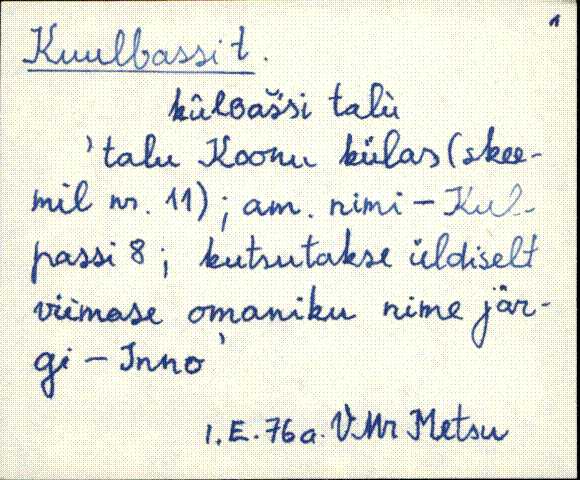 1
Kuulbassi t.
kùlbaśsi talù
'talu Koonu külas (skee-
mil nr. 11); am. nimi - Kul-
passi 8; kutsutakse üldiselt
viimase omaniku nime jär-
gi - Inno'
I. E. 76 a. V.Mr Metsu